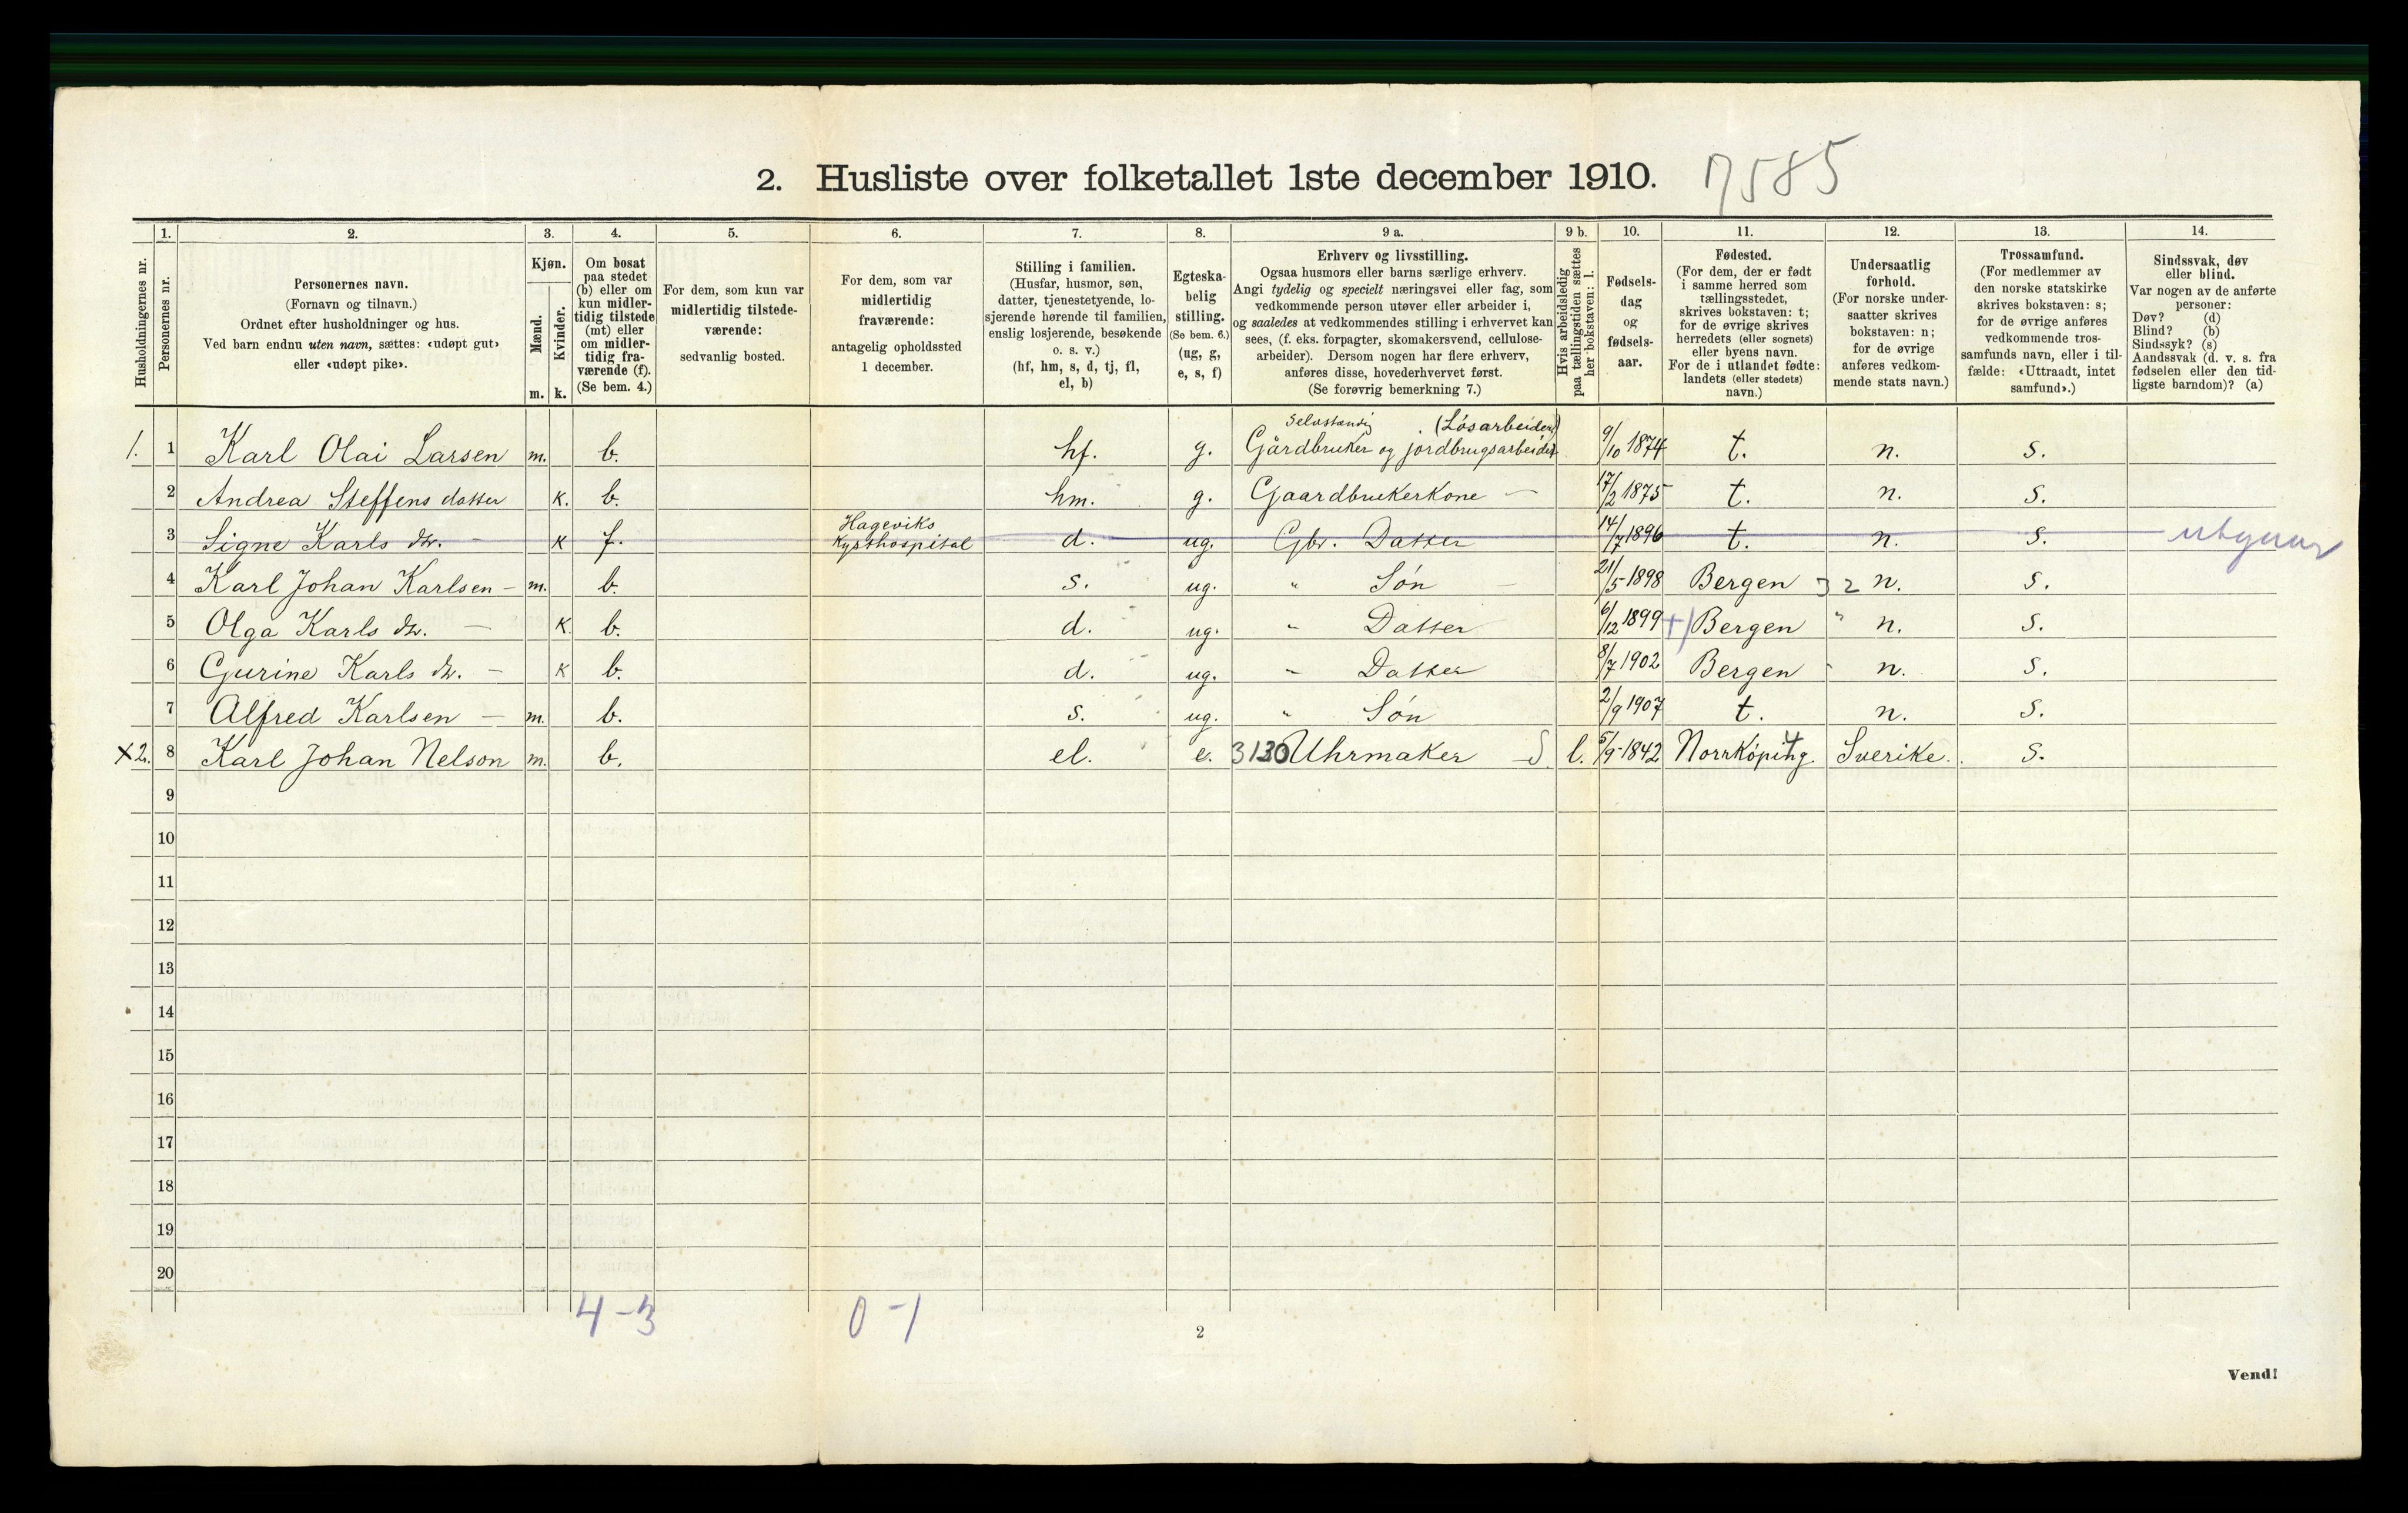 2. Husliste over folketallet 1ste december 1910. 7585
1. 2. 3. 4. 5. 6. 7. 8. 9 a. 9 b. 10. 11. 12. 13. 14.
Husholdningernes nr.
Personernes nr.
Personernes navn.
(Fornavn og tilnavn.)
Ordnet efter husholdninger og hus.
Ved barn endnu uten navn, sættes: «udøpt gut»
eller «udøpt pike».
Kjøn.
Mænd.
Kvinder.
m. k.
Om bosat
paa stedet
(b) eller om
kun midler-
tidig tilstede
(mt) eller
om midler-
tidig fra-
værende (f).
(Se bem. 4.)
For dem, som kun var
midlertidig tilstede-
værende:
sedvanlig bosted.
For dem, som var
midlertidig
fraværende:
antagelig opholdssted
1 december.
Stilling i familien.
(Husfar, husmor, søn,
datter, tjenestetyende, lo-
sjerende hørende til familien,
enslig losjerende, besøkende
o. s. v.)
(hf, hm, s, d, tj, fl,
el, b)
Egteska-
belig
stilling.
(Se bem. 6.)
(ug, g,
e, s, f)
Erhverv og livsstilling.
Ogsaa husmors eller barns særlige erhverv.
Angi tydelig og specielt næringsvei eller fag, som
vedkommende person utøver eller arbeider i,
og saaledes at vedkommendes stilling i erhvervet kan
sees, (f. eks. forpagter, skomakersvend, cellulose-
arbeider). Dersom nogen har flere erhverv,
anføres disse, hovederhvervet først.
(Se forøvrig bemerkning 7.)
Hvis arbeidsledig
paa tællingstiden sættes
her bokstaven: l.
Fødsels-
dag
og
fødsels-
aar.
Fødested.
(For dem, der er født
i samme herred som
tællingsstedet,
skrives bokstaven: t;
for de øvrige skrives
herredets (eller sognets)
eller byens navn.
For de i utlandet fødte:
landets (eller stedets)
navn.)
Undersaatlig
forhold.
(For norske under-
saatter skrives
bokstaven: n;
for de øvrige
anføres vedkom-
mende stats navn.)
Trossamfund.
(For medlemmer av
den norske statskirke
skrives bokstaven: s;
for de øvrige anføres
vedkommende tros-
samfunds navn, eller i til-
fælde: «Uttraadt, intet
samfund».)
Sindssvak, døv
eller blind.
Var nogen av de anførte
personer:
Døv? (d)
Blind? (b)
Sindssyk? (s)
Aandssvak (d. v. s. fra
fødselen eller den tid-
ligste barndom)? (a)
Selvstændig (Løsarbeider)
1. 1 Karl Olai Larsen m. b. hf. g. Gårdbruker og jordbrugsarbeider 9/10 1874 t. n. s.
2 Andrea Steffens datter k. b. hm. g. Gaardbrukerkone – 17/2 1875 t. n. s.
Hageviks
3 Signe Karls dtr. – k f. Kysthospital d. ug. Gbr. Datter 14/7 1896 t. n. s. utgaar
4 Karl Johan Karlsen – m. b. s. ug. " Søn – 21/5 1898 Bergen 32 n. s.
5 Olga Karls dtr. – k. b. d. ug. " Datter 6/12 1899 +) Bergen " n. s.
6 Gurine Karls dtr. – k b. d. ug. " Datter 8/7 1902 Bergen " n. s.
7 Alfred Karlsen – m. b. s. ug. " Søn 2/9 1907 t. n. s.
X 2. 8 Karl Johan Nelson m. b. el. e. 3130 Uhrmaker – S l. 5/9-1842 Norrköping Sverike. s.
9
10
11
12
13
14
15
16
17
18
19
20
4 – 3 0 – 1
2
Vend!